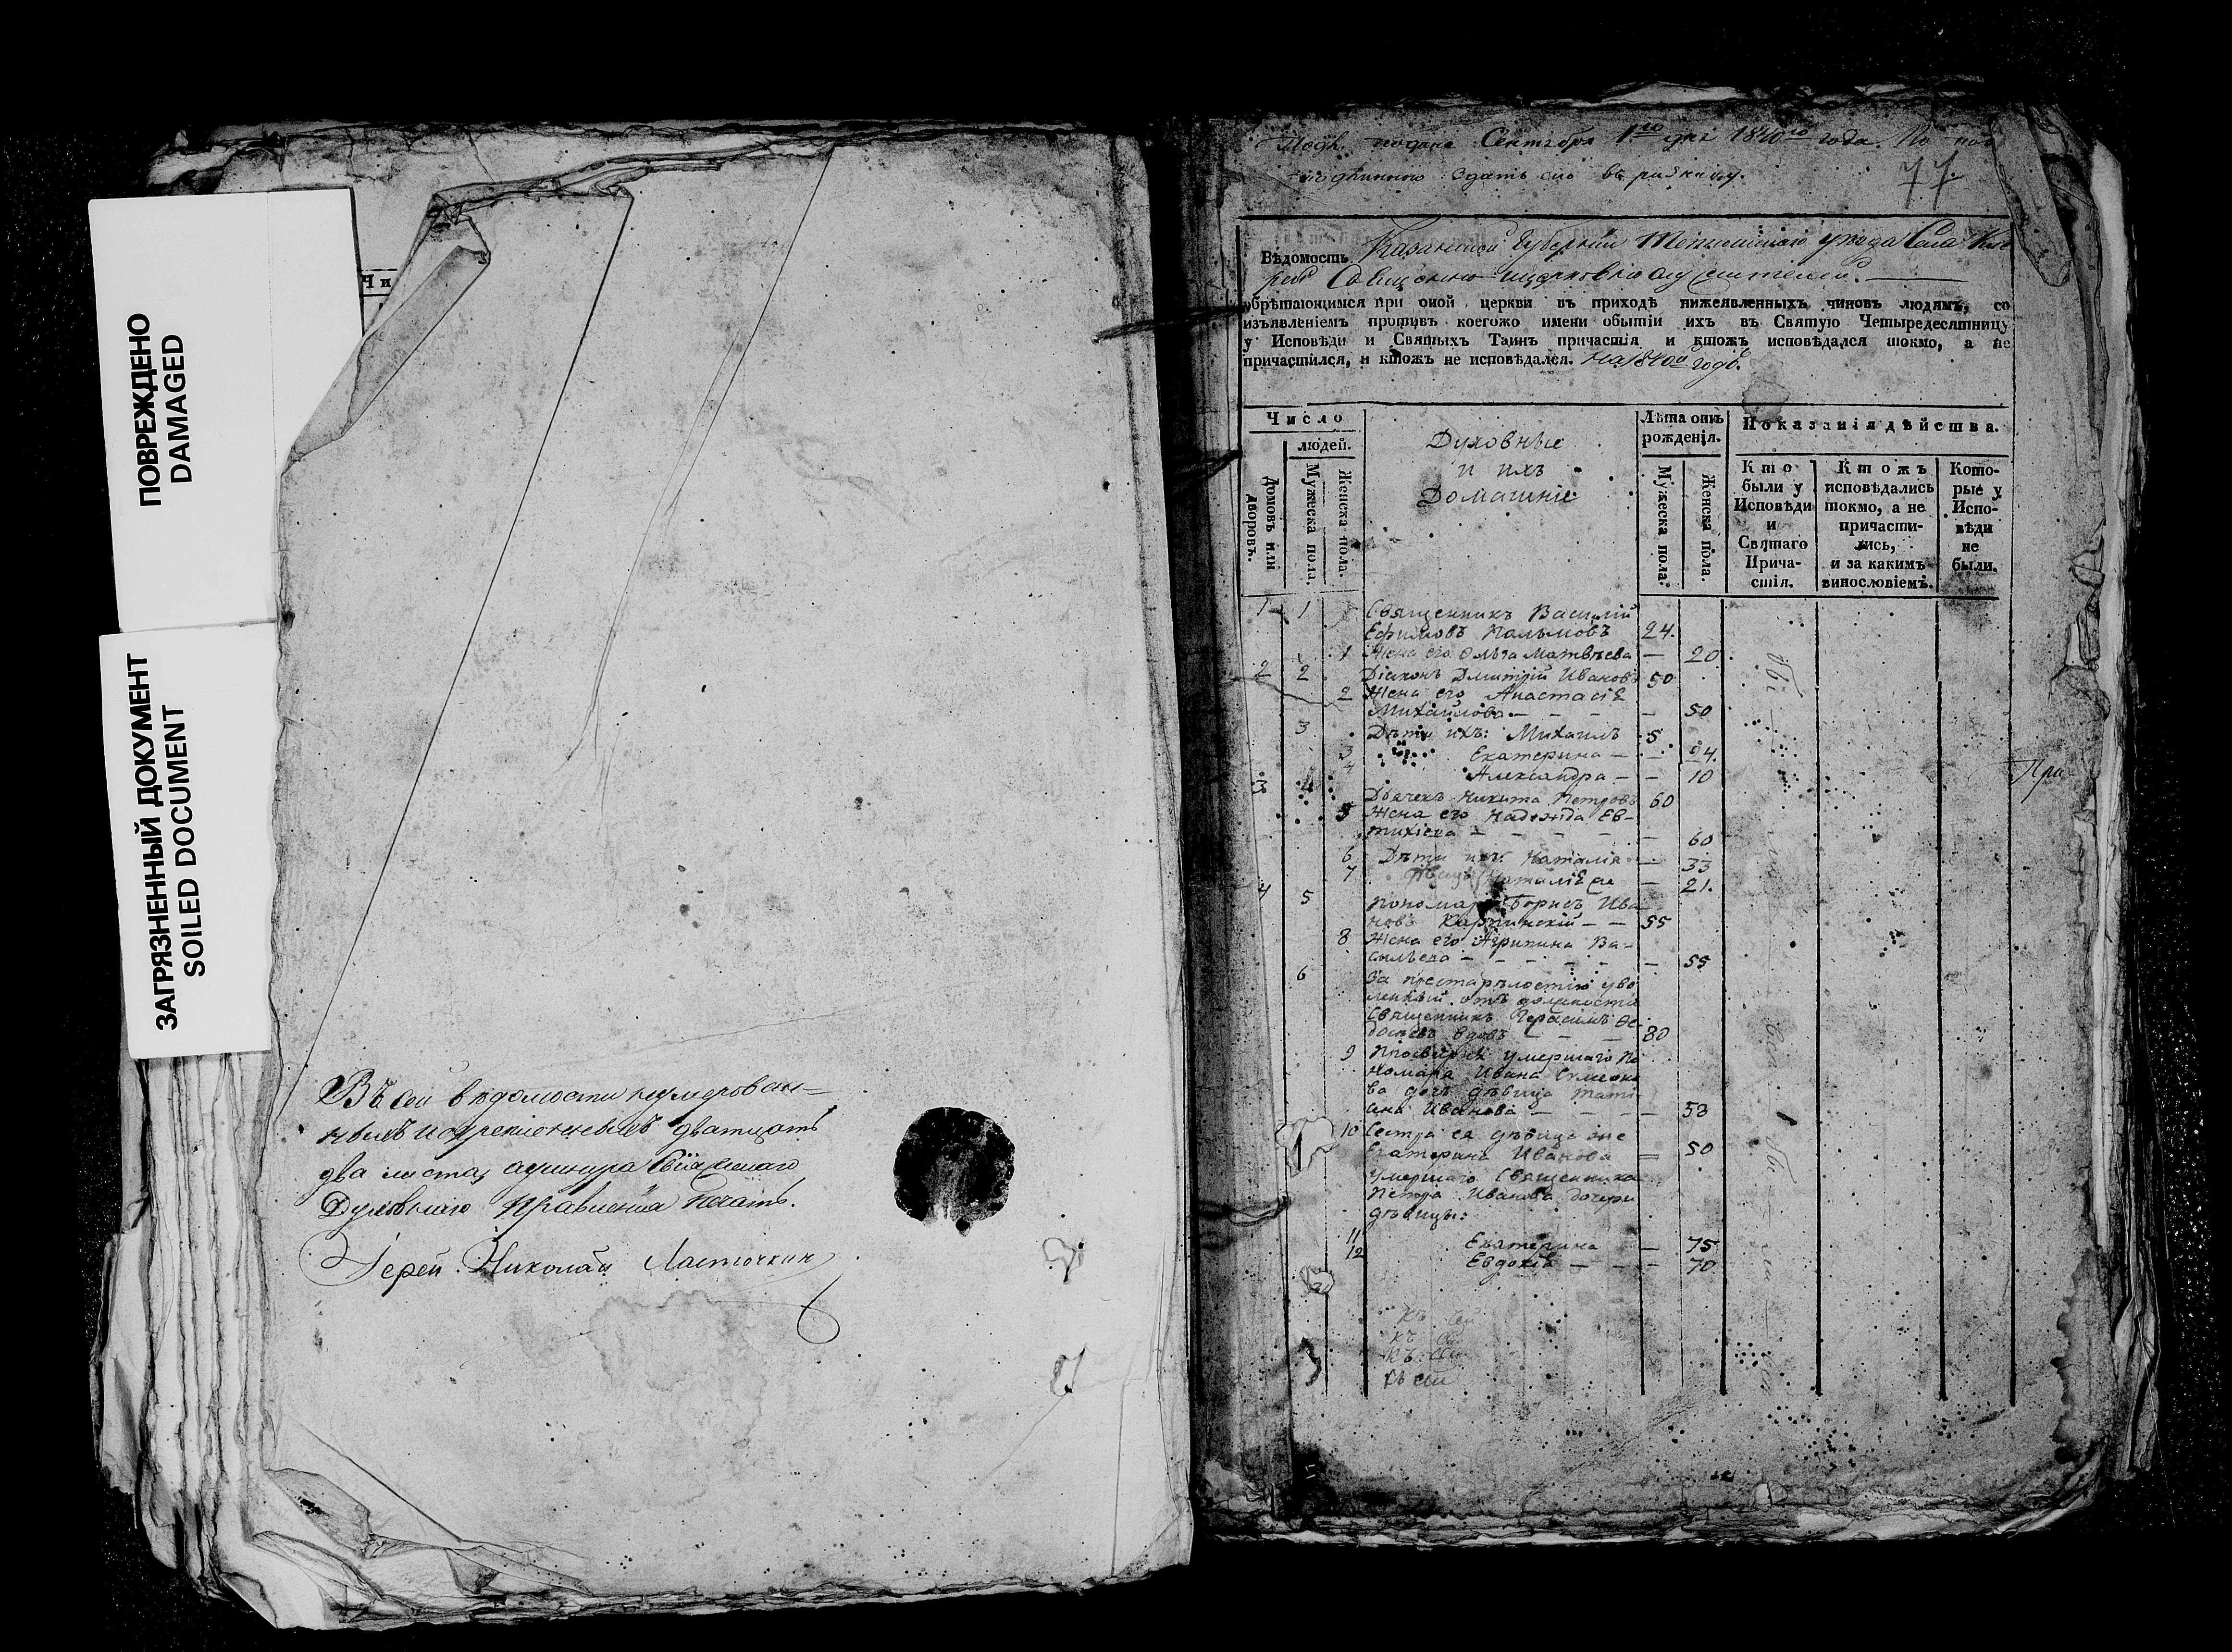 ПОВРЕЖДЕНО
DAMAGED
ЗАГРЯЗНЕННЫЙ ДОКУМЕНТ
SOILED DOCUMENT
Чи
Въ сей вѣдомости нумерован-
ныхъ и скрепленныхъ дватцать
два листа,
Духовнаго Правленія печать.
Іерей Николай Ласточкин
подана Сентября 1го дня 1840го года. По
сдать въ
77
Вѣдомость Казанской Губерніи уѣзда Села
Священно церковно служителей.
обрѣтающимся при оной церкви въ приходѣ нижеявленныхъ чиновъ людямъ, со
изъявленіемъ противъ коегожо имени обытіи ихъ въ Святую Четыредесятницу
у Исповѣди и Святыхъ Таинъ причастія и ктожъ исповѣдался токмо, а не
причастился, и ктожъ не исповѣдался. на 1840й годъ.
Число
людей.
Домовъ или дворовъ.
Мужеска пола.
Женска пола.
Духовные
и ихъ
Домашніе
Лѣта отъ рожденія.
Мужеска пола.
Женска пола.
Показанія дѣйства.
Кто были у Исповѣди и Святаго Прича-стія.
Ктожъ исповѣдались токмо, а не причасти-лись, и за какимъ винословіемъ.
Кото-рые у Испо-вѣди не были.
1 1 Священникъ Василій
Ефимовъ Пальмовъ 24.
1 Жена его Ольга Матвѣева — 20
2 2 Діаконъ Дмитрій Ивановъ 50
2 Жена его Анастасія
Михайлова — — — 50
3 Дѣти ихъ: Михаилъ 5
3 Екатерина — — 24.
4 Александра — — 10
3 4 Дьячекъ Никита Петровъ 60
5 Жена его Надежда Ев-
тихіева — — — — 60
6 Дѣти ихъ: Наталія — 33
7 Наталія — 21.
4 5 Пономарь Борисъ Ива
новъ — — 55
8 Жена его Агрипина Ва-
сильева — — — — 55
6 За престарѣлостію уво
ленный отъ должности
Священникъ Герасимъ Ѳе
досѣевъ вдовъ — — 80
9 Просвирня умершаго по
номаря Ивана Симеоно
ва дочь дѣвица Тати
ана Иванова — — — 53
10 Сестра ея дѣвица же
Екатерина Иванова — 50
умершаго Священника
Петра Иванова дочери
дѣвицы:
11 Екатерина — 75
12 Евдокія — — — 70
Къ сей
Къ сей
Къ сей
Къ сей
При